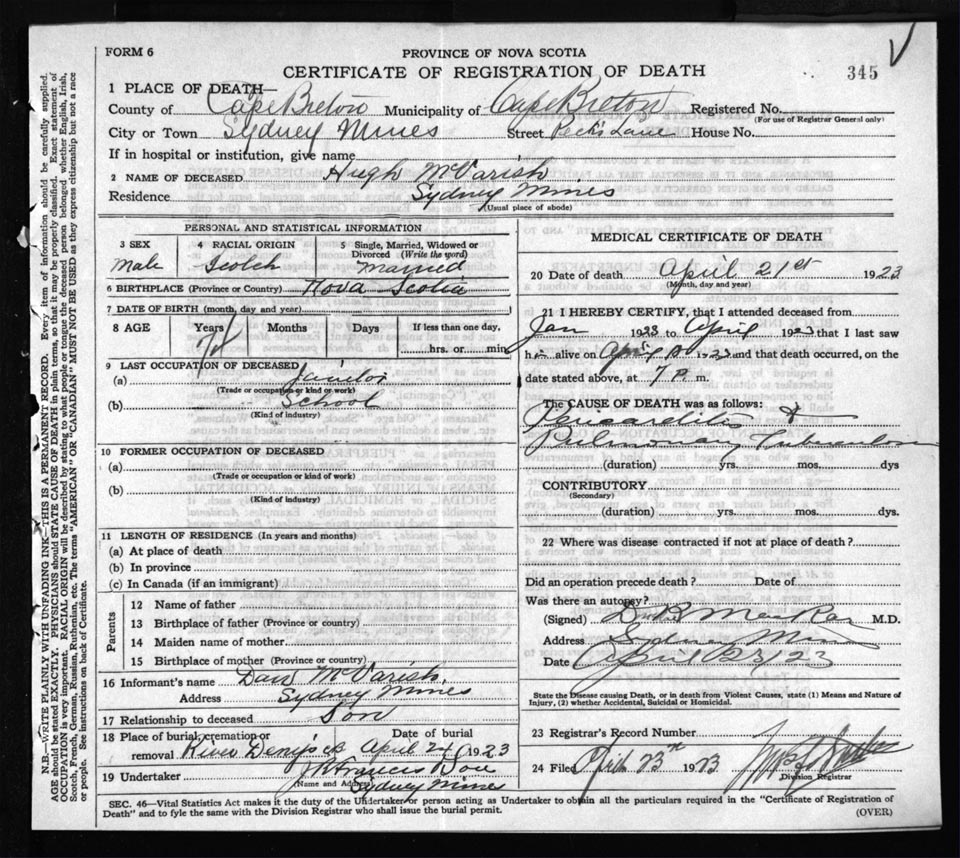 FORM 6
PROVINCE OF NOVA SCOTIA
CERTIFICATE OF REGISTRATION OF DEATH
345
1 PLACE OF DEATH—
County of Cape Breton Municipality of Cape Breton Registered No.
(For use of Registrar General only)
City or Town Sydney Mines Street Peck's Lane House No.
If in hospital or institution, give name
2 NAME OF DECEASED Hugh McVarish
Residence Sydney Mines
(Usual place of abode)
PERSONAL AND STATISTICAL INFORMATION
3 SEX
Male
4 RACIAL ORIGIN
Scotch
5 Single, Married, Widowed or
Divorced (Write the word)
Married
6 BIRTHPLACE (Province or Country) Nova Scotia
7 DATE OF BIRTH (month, day and year)
8 AGE Years Months Days If less than one day,
hrs. or min.
9 LAST OCCUPATION OF DECEASED
(a) Janitor
(Trade or occupation or kind of work)
(b) School
(Kind of industry)
10 FORMER OCCUPATION OF DECEASED
(a)
(Trade or occupation or kind of work)
(b)
(Kind of industry)
11 LENGTH OF RESIDENCE (In years and months)
(a) At place of death
(b) In province
(c) In Canada (if an immigrant)
Parents
12 Name of father
13 Birthplace of father (Province or country)
14 Maiden name of mother
15 Birthplace of mother (Province or country)
16 Informant's name Dan McVarish
Address Sydney Mines
17 Relationship to deceased Son
18 Place of burial, cremation or Date of burial
removal River Denys C B April 24 1923
19 Undertaker Francis
(Name and Address) Sydney Mines
MEDICAL CERTIFICATE OF DEATH
20 Date of death April 21st 1923
(Month, day and year)
21 I HEREBY CERTIFY, that I attended deceased from
Jan 1923 to April 1923 that I last saw
him alive on April 1923 and that death occurred, on the
date stated above, at 7 P. m.
The CAUSE OF DEATH was as follows:
Pericarditis &
Pulmonary Tuberculosis
(duration) yrs. mos. dys
CONTRIBUTORY
(Secondary)
(duration) yrs. mos. dys.
22 Where was disease contracted if not at place of death?
Did an operation precede death? Date of
Was there an autopsy?
(Signed) M.D.
Address Sydney Mines
Date April 23/23
State the Disease causing Death, or in death from Violent Causes, state (1) Means and Nature of
Injury, (2) whether Accidental, Suicidal or Homicidal.
23 Registrar's Record Number
24 Filed April 23rd 1923
Division Registrar
SEC. 46—Vital Statistics Act makes it the duty of the Undertaker or person acting as Undertaker to obtain all the particulars required in the "Certificate of Registration of
Death" and to fyle the same with the Division Registrar who shall issue the burial permit.
(OVER)
N.B.—WRITE PLAINLY WITH UNFADING INK—THIS IS A PERMANENT RECORD. Every item of information should be carefully supplied.
AGE should be stated EXACTLY. PHYSICIANS should STATE CAUSE OF DEATH in plain terms, so that it may be properly classified. Exact statement of
OCCUPATION is very important. RACIAL ORIGIN will be described by stating to what people or tongue the deceased person belonged whether English, Irish,
Scotch, French, German, Russian, Ruthenian, etc. The terms "AMERICAN" OR "CANADIAN" MUST NOT BE USED as they express citizenship but not a race
or people. See instructions on back of Certificate.